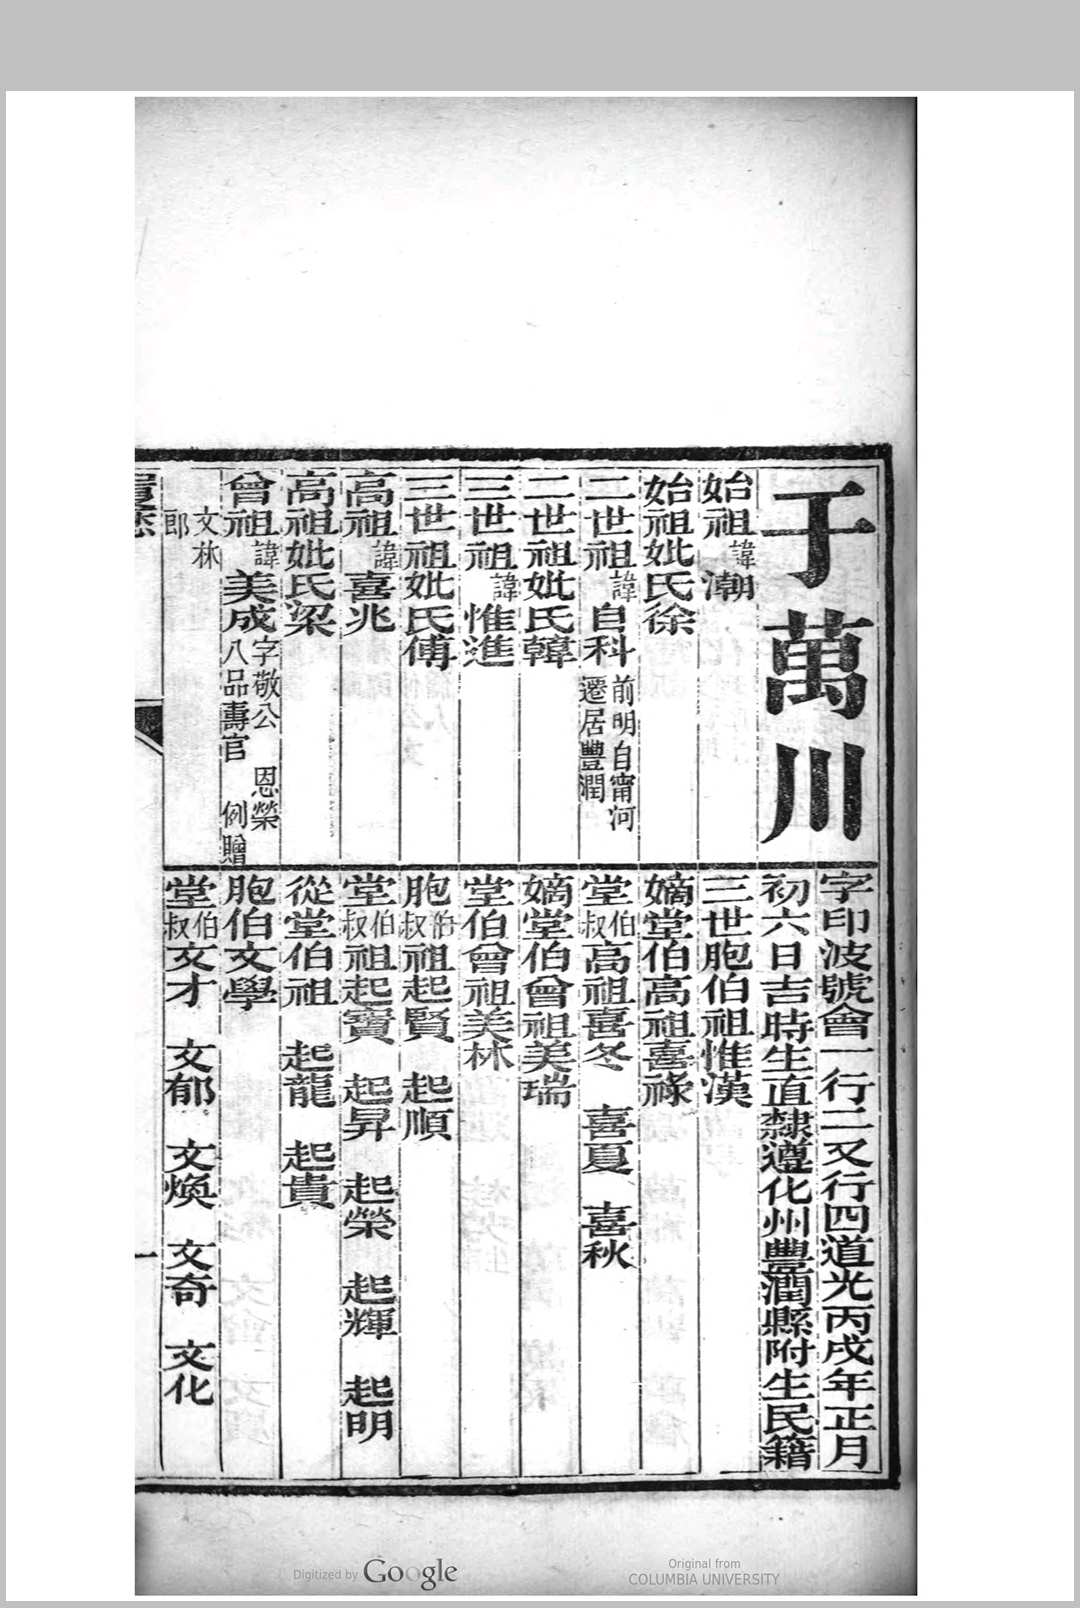 于萬川
字印波號會一行二又行四道光丙戌年正月
初六日吉時生直隸遵化州豐潤縣附生民籍
始祖諱潮
始祖妣氏徐
二世祖諱自科前明自甯河遷居豐潤
二世祖妣氏韓
三世祖諱惟進
三世祖妣氏傅
高祖諱喜兆
高祖妣氏梁
曾祖諱美成字敬公 恩榮八品壽官 例贈
文林郎
三世胞伯祖惟漢
嫡堂伯高祖喜祿
堂伯叔高祖喜冬 喜夏 喜秋
嫡堂伯曾祖美瑞
堂伯曾祖美林
胞伯叔祖起賢 起順
堂伯叔祖起寶 起昇 起榮 起輝 起明
從堂伯祖 起龍 起貴
胞伯文學
堂伯叔文才 文郁 文煥 文奇 文化
Digitized by Google
Original from
COLUMBIA UNIVERSITY